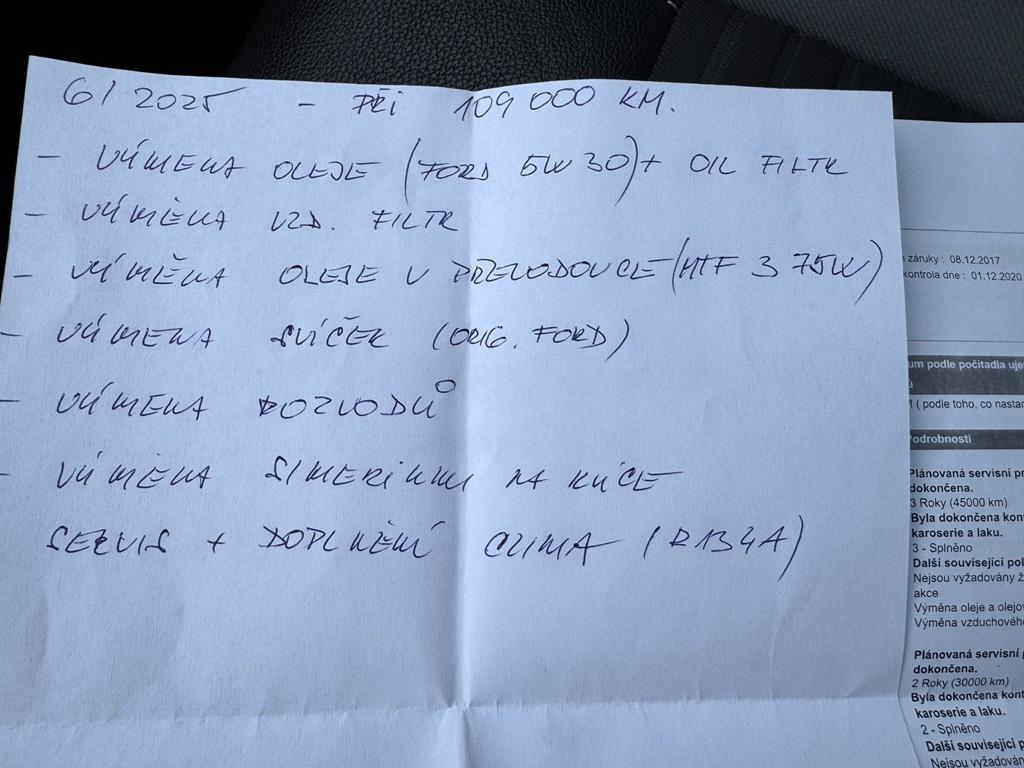 6/2025 - PŘI 109 000 KM.
- VÝMENA OLEJE (FORD 5W 30) + OIL FILTR
- VÝMĚNA VZD. FILTR
- VÝMĚNA OLEJE V PŘEVODOVCE (MTF 3 75W)
- VÝMENA SVÍČEK (ORIG. FORD)
- VÝMENA ROZVODŮ
- VÝMĚNA SIMERINKU NA KLICE
SERVIS + DOPLNĚNÍ CLIMA (R134A)
záruky : 08.12.2017
kontrola dne : 01.12.2020
um podle počitadla uje
( podle toho, co nastan
Podrobnosti
Plánovaná servisní pr
dokončena.
3 Roky (45000 km)
Byla dokončena kont
karoserie a laku.
3 - Splněno
Další související pol
Nejsou vyžadovány ž
akce
Výměna oleje a olejov
Výměna vzduchovéh
Plánovaná servisní p
dokončena.
2 Roky (30000 km)
Byla dokončena kont
karoserie a laku.
2 - Splněno
Další související p
Nejsou vyžadován